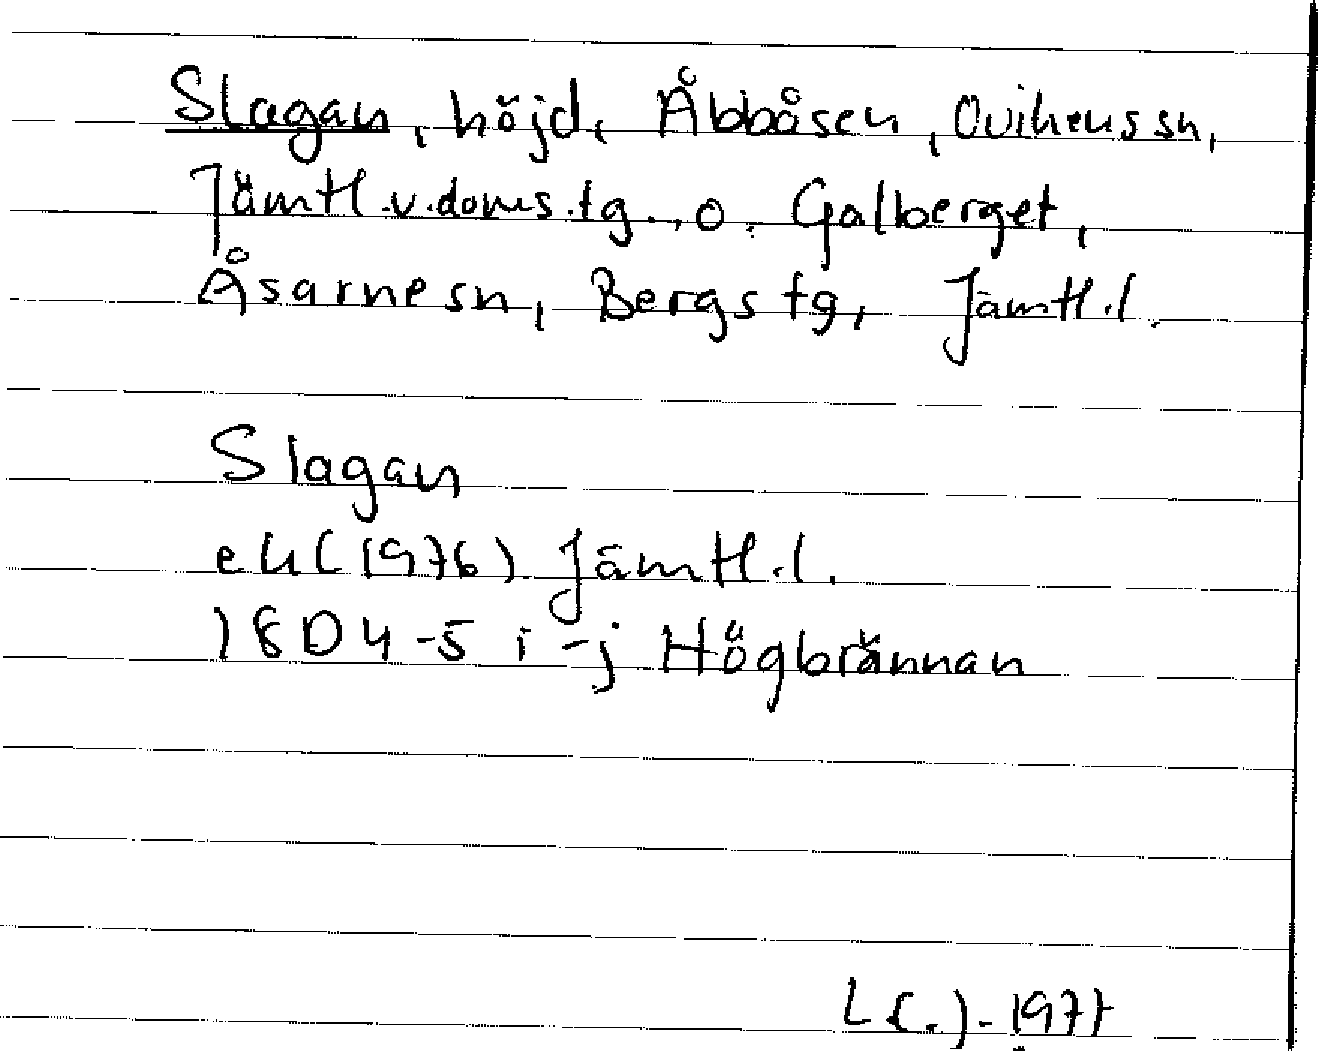 Slagan, höjd, Åbbåsen, Ovikens sn,
Jämtl.v.doms.tg., o. Galberget,
Åsarne sn, Bergs tg, Jämtl.l.
Slagan
ek (1976) Jämtl.l.
18D 4-5 i-j Högbrännan
1977